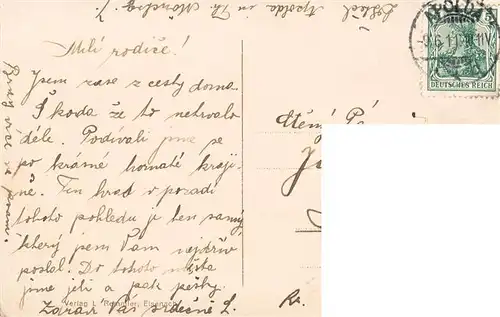 Milí rodiče!
Jsem zase z cesty doma.
Škoda že to netrvalo
déle. Podívali jsme se
po krásné hornaté kraji-
ně. Ten hrad v pozadí
tohoto pohledu je ten samý,
který jsem Vám nejdřív
poslal. Do tohoto místa
jsme jeli a pak pěšky.
Zdraví Vás srdečně L.
Brzy více na psaní.
Apolda in Th.
Ctěný
APOLDA
DEUTSCHES REICH
5
Verlag
Eisenach